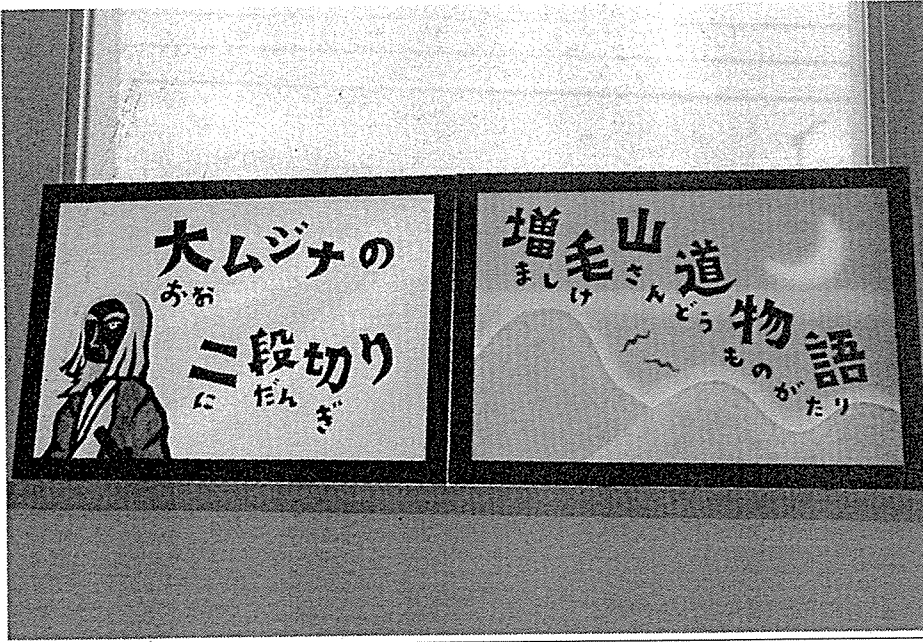 大ムジナの
おお
二段切り
に だん ぎ
増毛山道物語
ましけさんどうものがたり